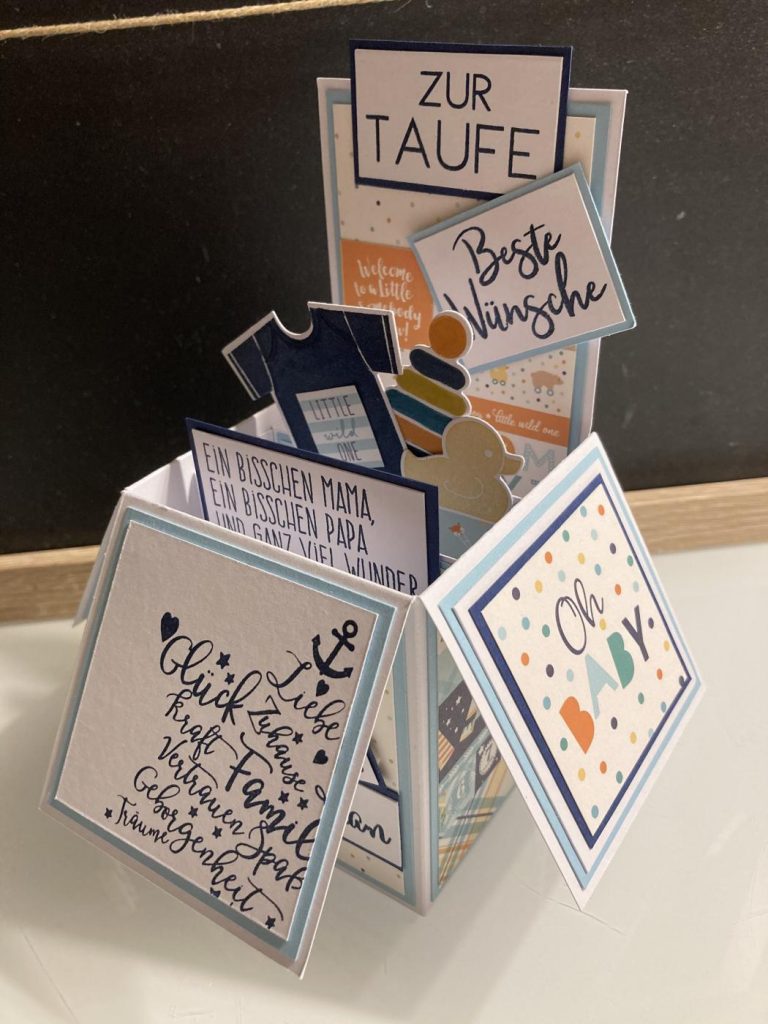 ZUR
TAUFE
Beste
Wünsche
Welcome
to a Little
little wild one
LITTLE
wild
ONE
EIN BISSCHEN MAMA,
EIN BISSCHEN PAPA
UND GANZ VIEL WUNDER
Oh
BABY
Glück
Liebe
Kraft
Zuhause
Vertrauen
Famil
Geborgenheit
Spaß
Träume